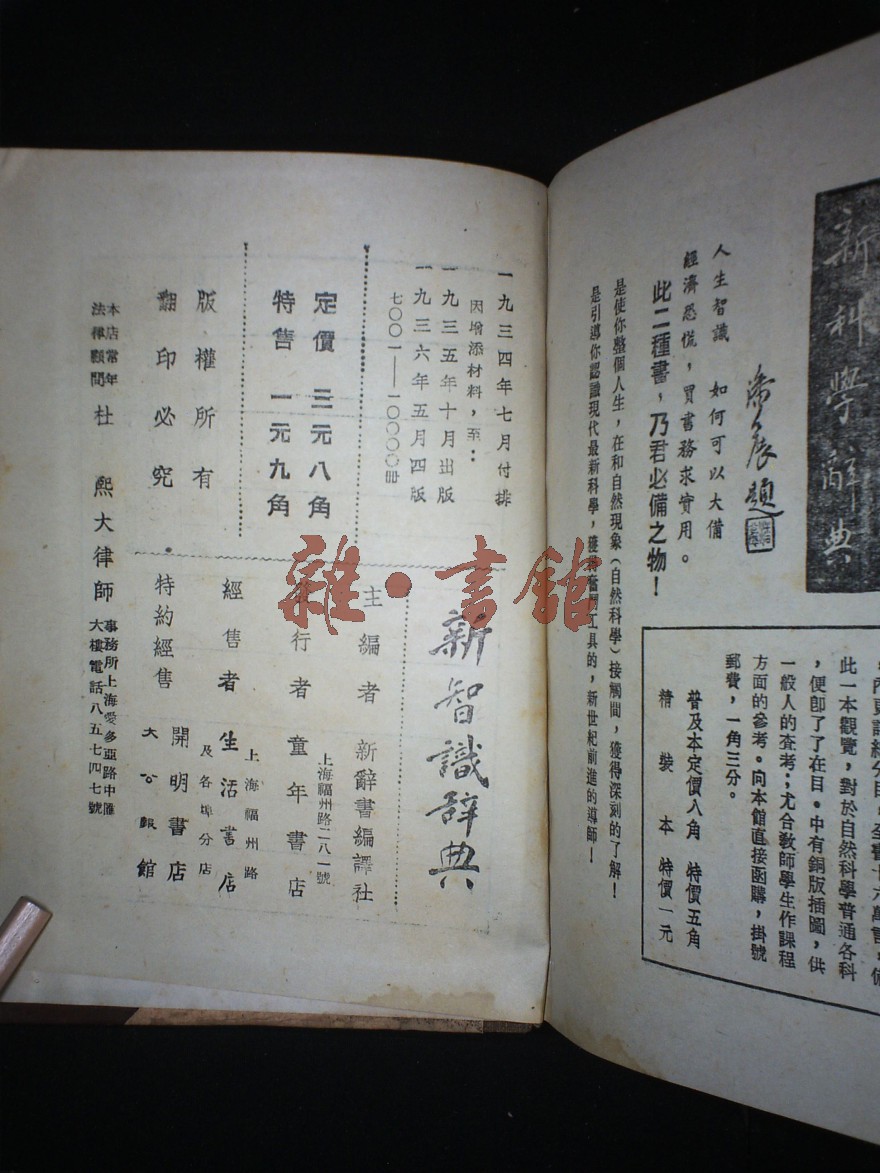 新科學辭典
潘公展題
人生智識　如何可以大備
經濟恐慌，買書務求實用。
此二種書，乃君必備之物！
是使你整個人生，在和自然現象（自然科學）接觸間，獲得深刻的了解！
是引導你認識現代最新科學，獲得奮鬥工具的，新世紀前進的導師！
此一本觀覽，對於自然科學普通各科
，便卽了了在目。中有銅版插圖，供
一般人的查考；尤合敎師學生作課程
方面的參考。向本館直接函購，掛號
郵費，一角三分。
普及本定價八角　特價五角
精裝本　特價一元
一九三四年七月付排
因增添材料，至：
一九三五年十月出版
一九三六年五月四版
七〇〇一——一〇〇〇〇册
定價　三元八角
特售　一元九角
版權所有
翻印必究
新智識辭典
主編者　新辭書編譯社
上海福州路二八一號
發行者　童年書店
上海福州路
經售者　生活書店
及各埠分店
特約經售　開明書店
大公報館
本店常年
法律顧問　杜　熙大律師　事務所上海愛多亞路中匯
大樓電話八五七四七號
雜·書館